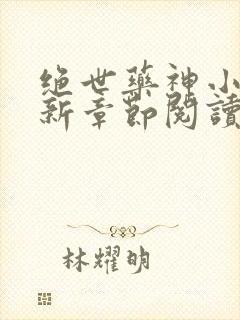 绝世藥神小
新章節閱讀
林耀明